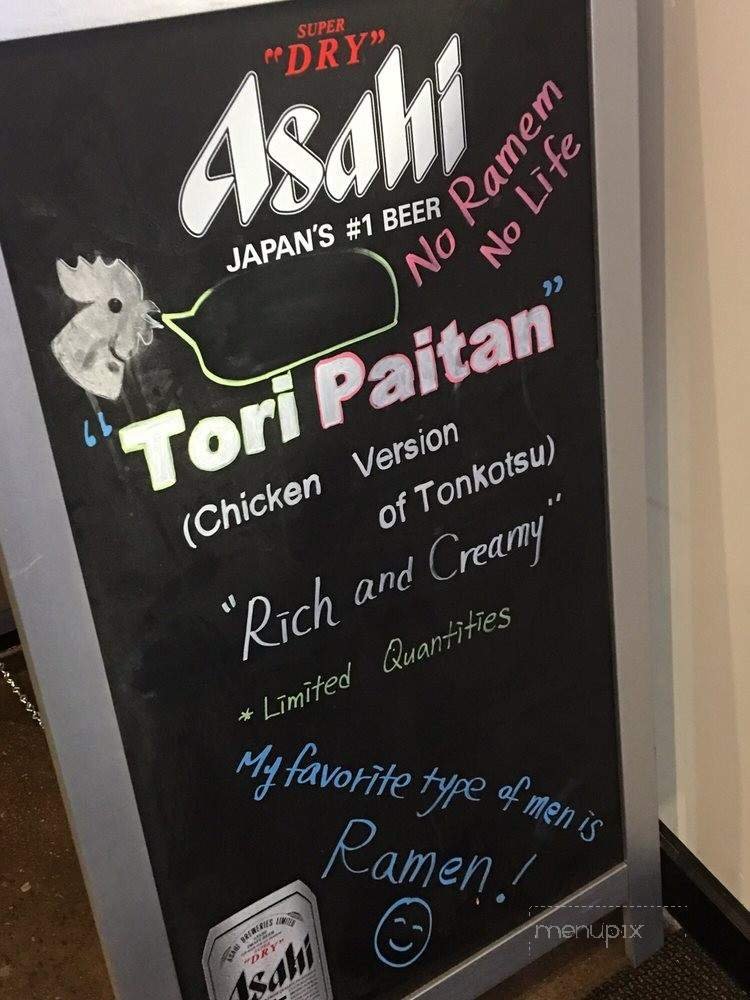 SUPER
"DRY"
Asahi
JAPAN'S #1 BEER
No Ramem
No Life
"Tori Paitan"
(Chicken Version
of Tonkotsu)
"Rich and Creamy"
* Limited Quantities
My favorite type of men is
Ramen!
ASAHI BREWERIES LIMITED
"DRY"
Asahi
menupix